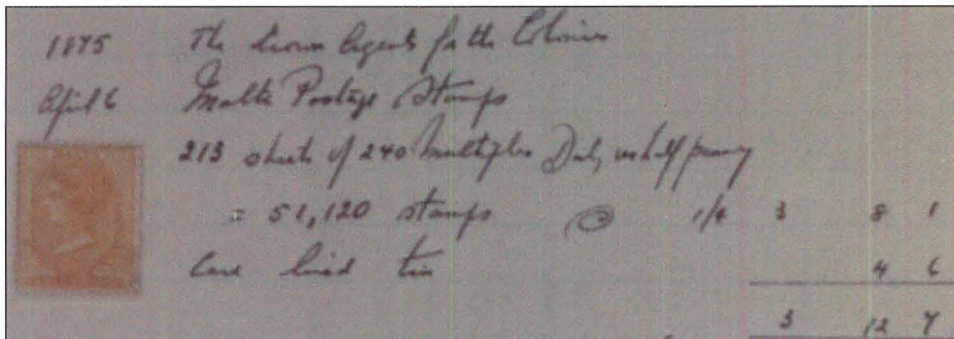 1875 The Crown Agents for the Colonies
April 6 Malta Postage Stamps
213 sheets of 240 multiples Duty, one half penny
= 51,120 stamps @ 1/4 3 8 1
Case lined tin 4 6
3 12 7